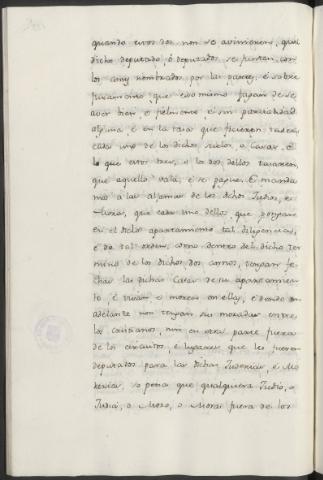 quando essos dos non se avinieren, quel
dicho deputado, ó deputados se juntan con
los assy nombrados por las partes, é sobre
juramento, que esso mismo fagan de se
aver bien, e fielmente, é sin parcialidad
alguna, é en la tasa que ficieren tasen
cada uno de los dichos suelos, o Casas. E
lo que essos tres, o los dos dellos tasaren,
que aquello vala, é se pague. E manda-
mos a las aljamas de los dichos Judios, e
Moros, que cada uno dellos, que pongan
en el dicho apartamiento tal diligencia,
e de tal orden, como dentro del dicho ter-
mino de los dichos dos annos, tengan fe-
chas las dichas Casas de su apartamien-
to, é vivan, e moren en ellas, e dende en
adelante non tengan sus moradas entre
los cristianos, nin en otra parte fuera
de los circuitos, e lugares que les fueren
deputados para las dichas Juderias, é Mo-
rerias, so pena que qualquiera Judio, o
Judia, o Moro, o Mora, fuera de los